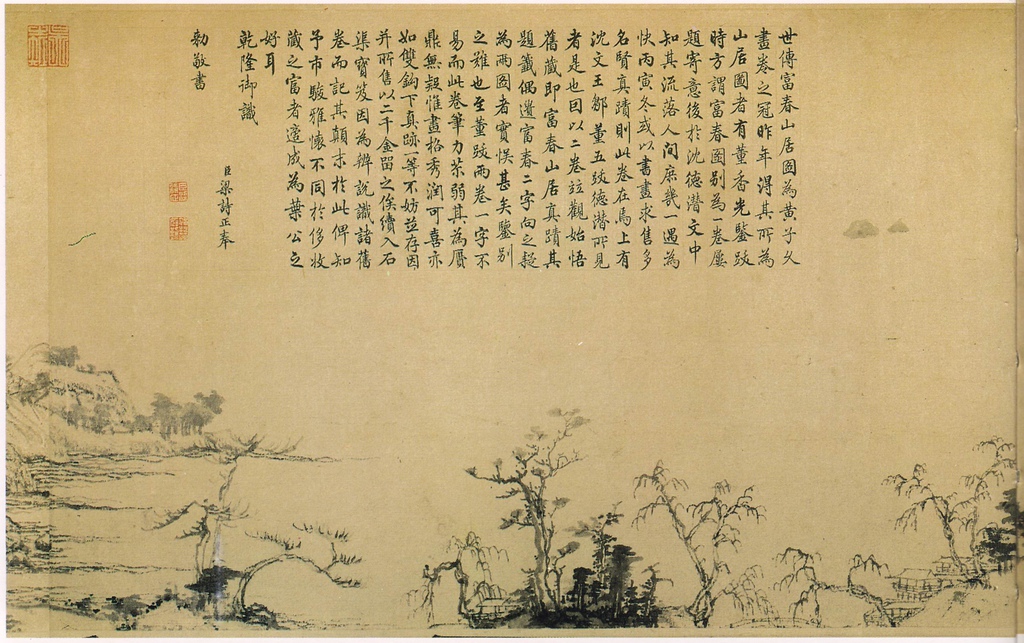 世傳富春山居圖為黃子久
畫卷之冠昨年得其所為
山居圖者有董香光鑒跋
時方謂富春圖別為一卷屢
題寄意後於沈德潛文中
知其流落人間庶幾一遇為
快丙寅冬或以書畫求售多
名賢真蹟則此卷在焉上有
沈文王鄒董五跋德潛所見
者是也因以二卷竝觀始悟
舊藏即富春山居真蹟其
題籤偶遺富春二字向之疑
為兩圖者實悞甚矣鑒別
之難也至董跋兩卷一字不
易而此卷筆力苶弱其為贋
鼎無疑惟畫格秀潤可喜亦
如雙鉤下真跡一等不妨竝存因
并所售以二千金留之俟續入石
渠寶笈因為辨說識諸舊
卷而記其顛末於此俾知
予市駿雅懷不同於侈收
藏之富者遂成為葉公之
好耳
乾隆御識
臣梁詩正奉
勅敬書